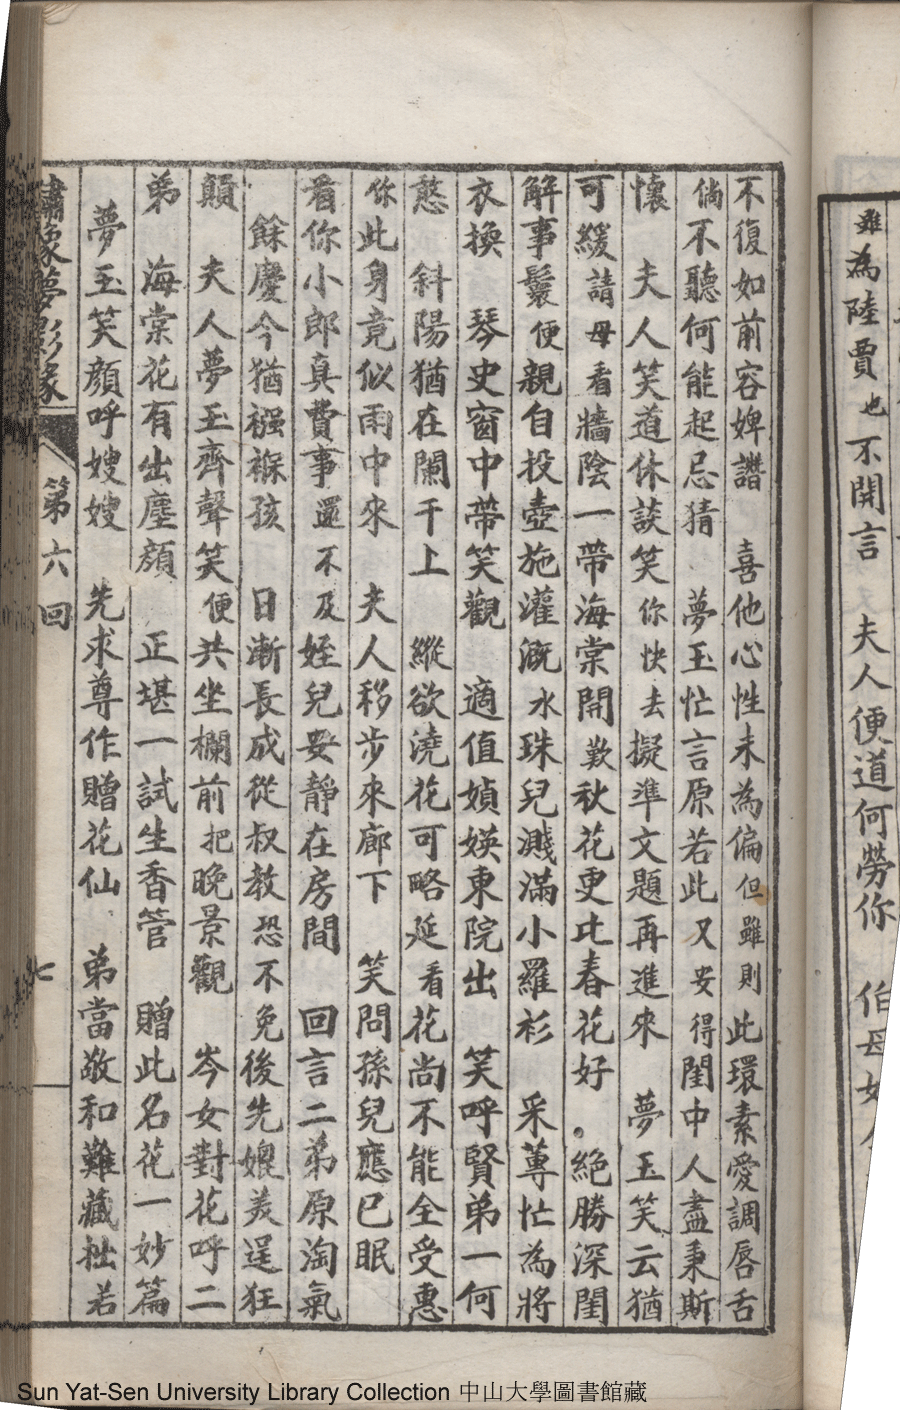 雖為陸賈也不開言　夫人便道何勞你　伯母
不復如前容婢譖　喜他心性未為偏但雖則此環素愛調唇舌
倘不聽何能起忌猜　夢玉忙言原若此又安得閨中人盡秉斯
懷　夫人笑道休談笑你快去擬準文題再進來　夢玉笑云猶
可緩請母看牆陰一帶海棠開歎秋花更比春花好。絕勝深閨
解事鬟便親自投壺施灌溉水珠兒濺滿小羅衫　采蓴忙為將
衣換　琴史窗中帶笑觀　適值媜媖東院出　笑呼賢弟一何
憨　斜陽猶在闌干上　縱欲澆花可略延看花尚不能全受惠
你此身竟似雨中來　夫人移步來廊下　笑問孫兒應已眠
看你小郎真費事還不及姪兒安靜在房間　回言二弟原淘氣
餘慶今猶襁褓孩　日漸長成從叔教恐不免後先媲美逞狂
顛　夫人夢玉齊聲笑便共坐欄前把晚景觀　岑女對花呼二
弟　海棠花有出塵顏　正堪一試生香管　贈此名花一妙篇
夢玉笑顏呼嫂嫂　先求尊作贈花仙　弟當敬和難藏拙若
繡像夢影緣　第六回　七
Sun Yat-Sen University Library Collection 中山大學圖書館藏